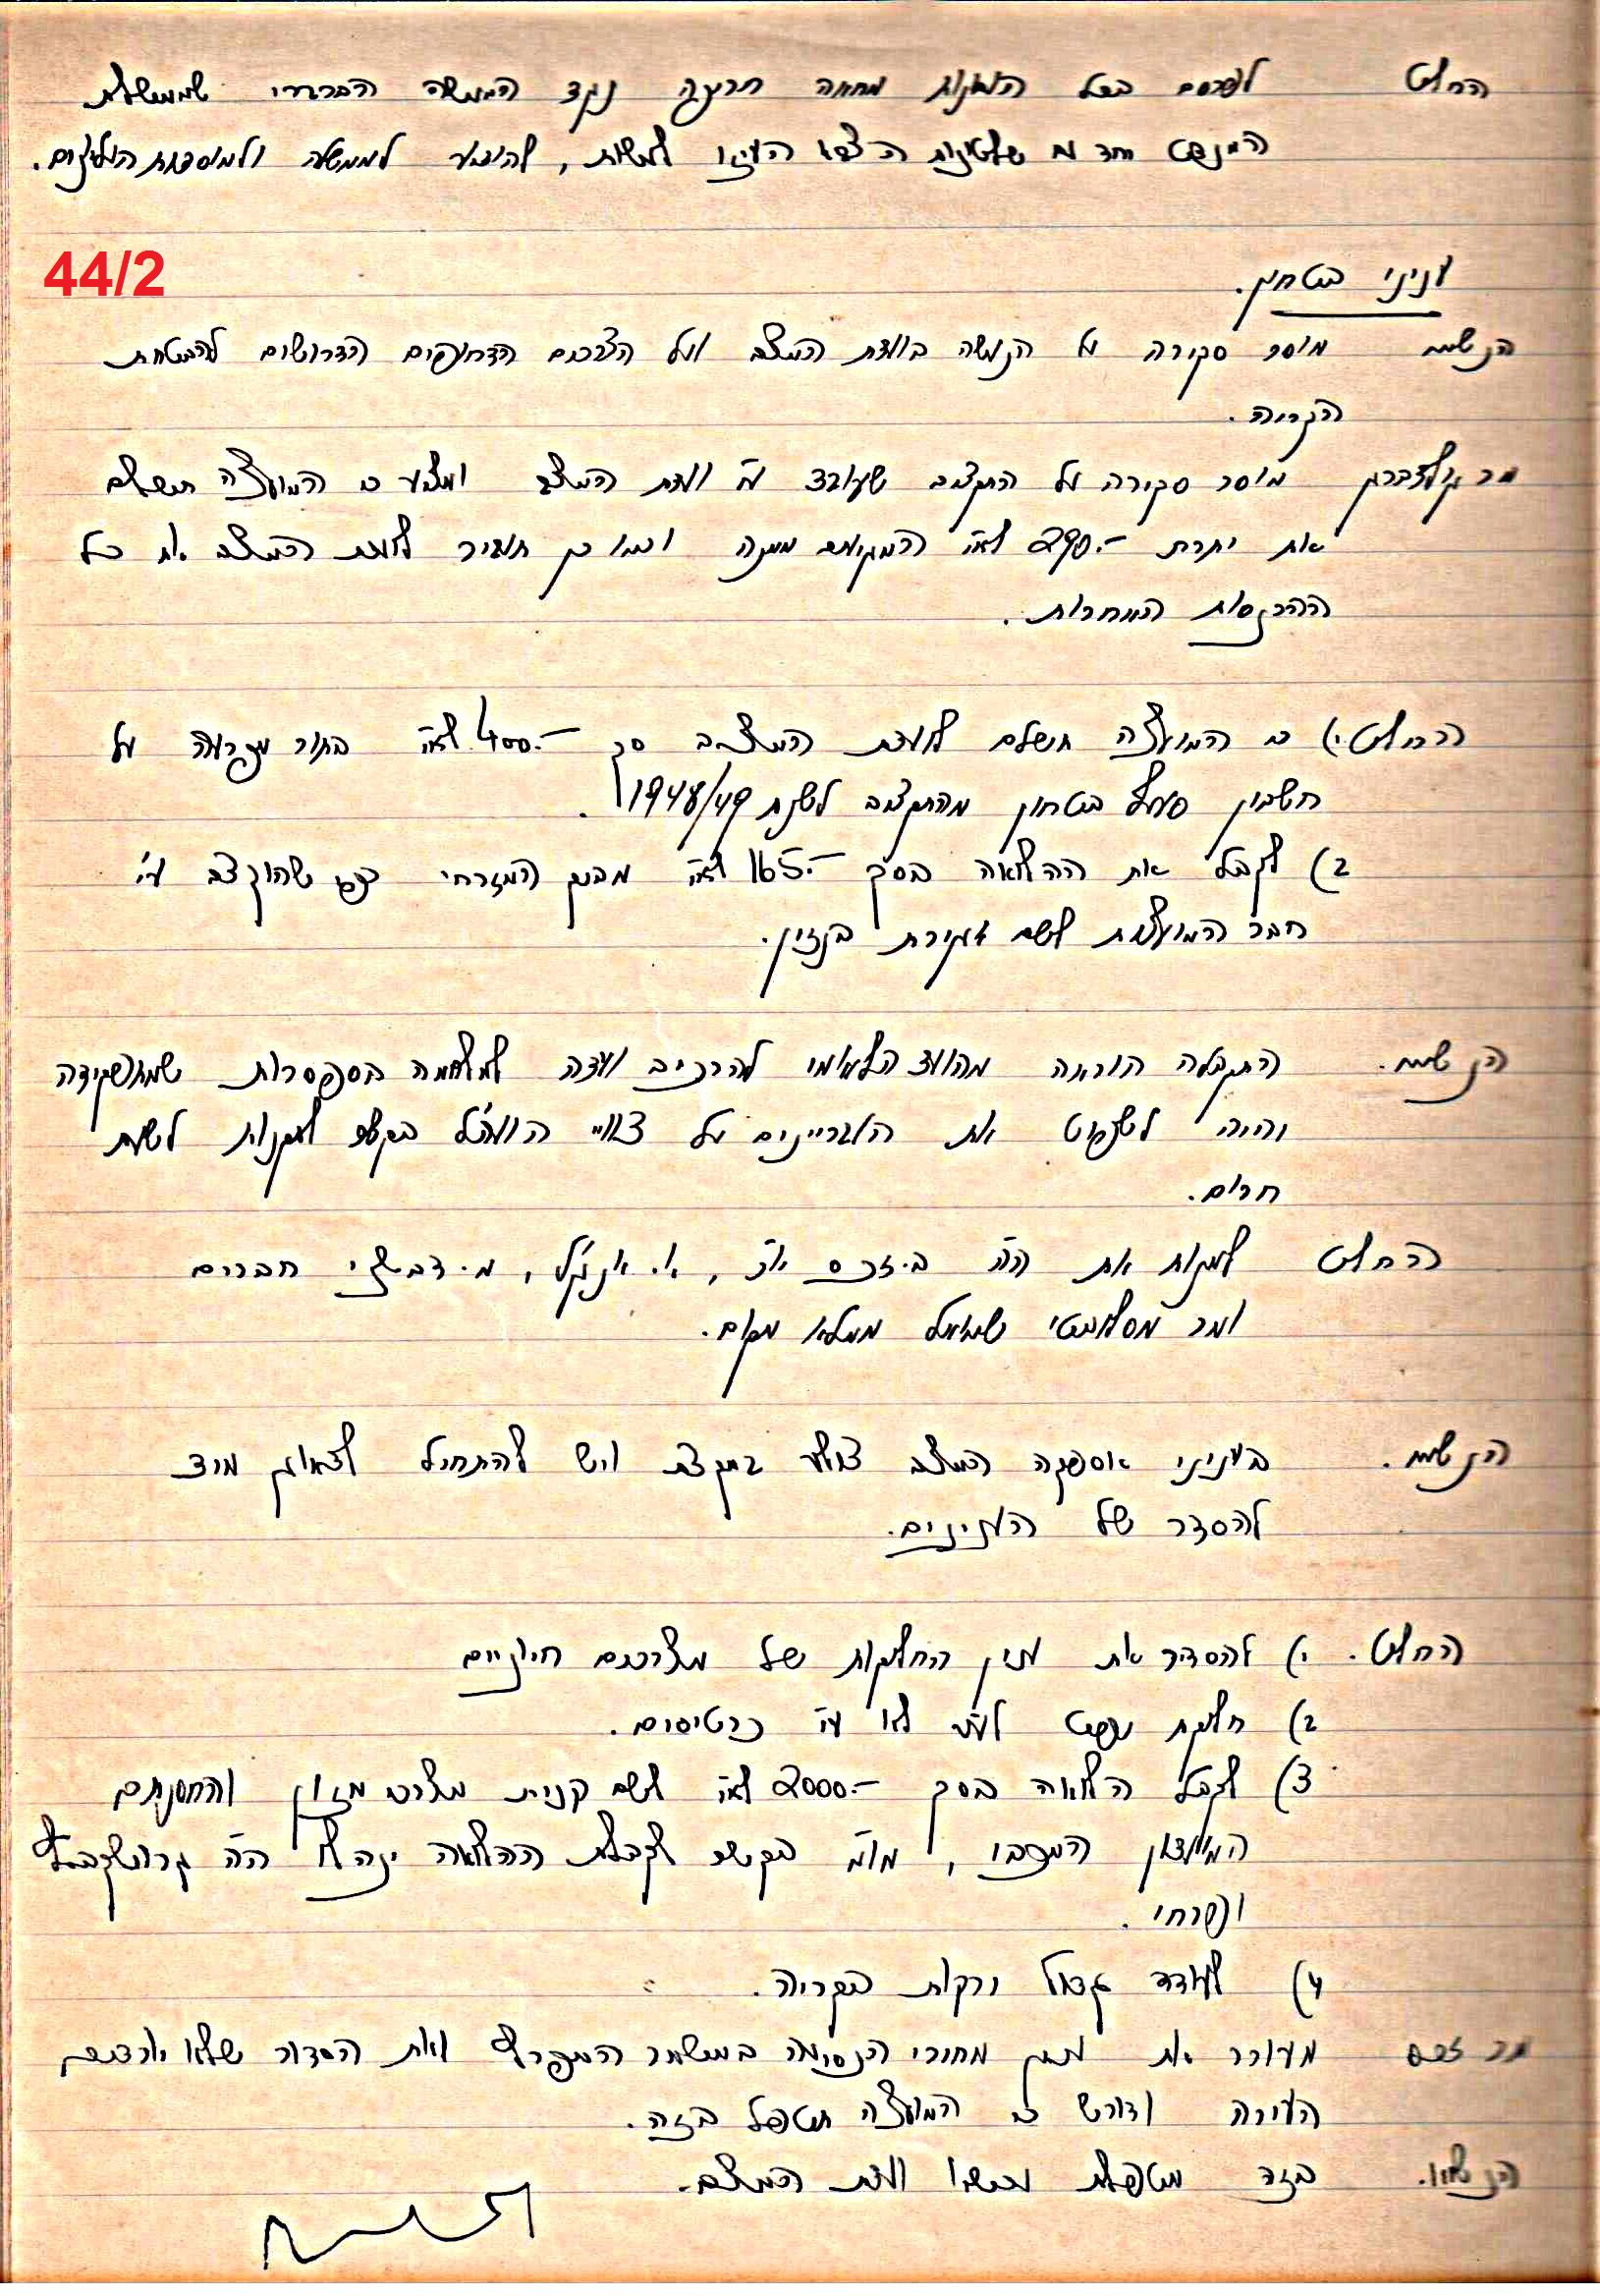 הוחלט לפרסם בכל העתונות מחאה חריפה נגד המעשה הברברי שממשלת
המנדט שלטונות הצבא העיזו לעשות, להופיע לממשלה ולמוסדות הלאומיים.
44/2
עניני בטחון.
הנשיא מוסר סקירה על הנעשה בועדת המצב ועל הצרכים הדחופים הדרושים להבטחת
הקריה.
מר גולדברג מוסר סקירה על התקציב שעובד ע"י ועדת המצב ומציע כי המועצה תשלם
את יתרת 290.- לא"י המגיעים ממנה וכמו כן תעביר לועדת המצב את כל
ההכנסות האחרות.
הוחלט 1) כי המועצה תשלם לועדת המצב סך 400.- לא"י בתור מפרעה על
חשבון סעיף בטחון מהתקציב לשנת 1948/49.
2) לקבל את ההלואה בסך 165.- לא"י מבנק המזרחי כפי שהוקצב ע"י
חבר המועצות לשם אגירת בנזין.
הנשיא. התקבלה הוראה מהועד הלאומי להרכיב ועדה למלחמה בספסרות שמתפקידה
יהיה לשפוט את העבריינים על צווי הועה"ל בקשר לתקנות לשעת
חרום.
הוחלט למנות את ה"ה ב. זכס, א. אנג'ל, מ. דבשני חברים
ומר מסלובטי שמואל ממלא מקום.
הנשיא. בעניני אספקה המצב צולע במקצת ויש להתחיל לדאוג מיד
להסדר של הענינים.
הוחלט. 1) להסדיר את ענין החלוקות של מצרכים חיוניים
2) חלוקת נפט לע"ע לא ע"י כרטיסים.
3) לקבל הלואה בסך 2000.- לא"י לשם קנית מצרכי מזון והחסנתם
המו"מ בקשר לקבלת ההלואה ינהלו ה"ה
ופרחי.
4) לעודד גדול ירקות בקריה.
מר זכס מעורר את ענין מחירי הנסיעה במשמר המפרץ ואת הסדור שלא
העירה ודורש כי המועצה תטפל בזה.
הנשיא. בזה מטפלת עכשיו ועדת המצב.